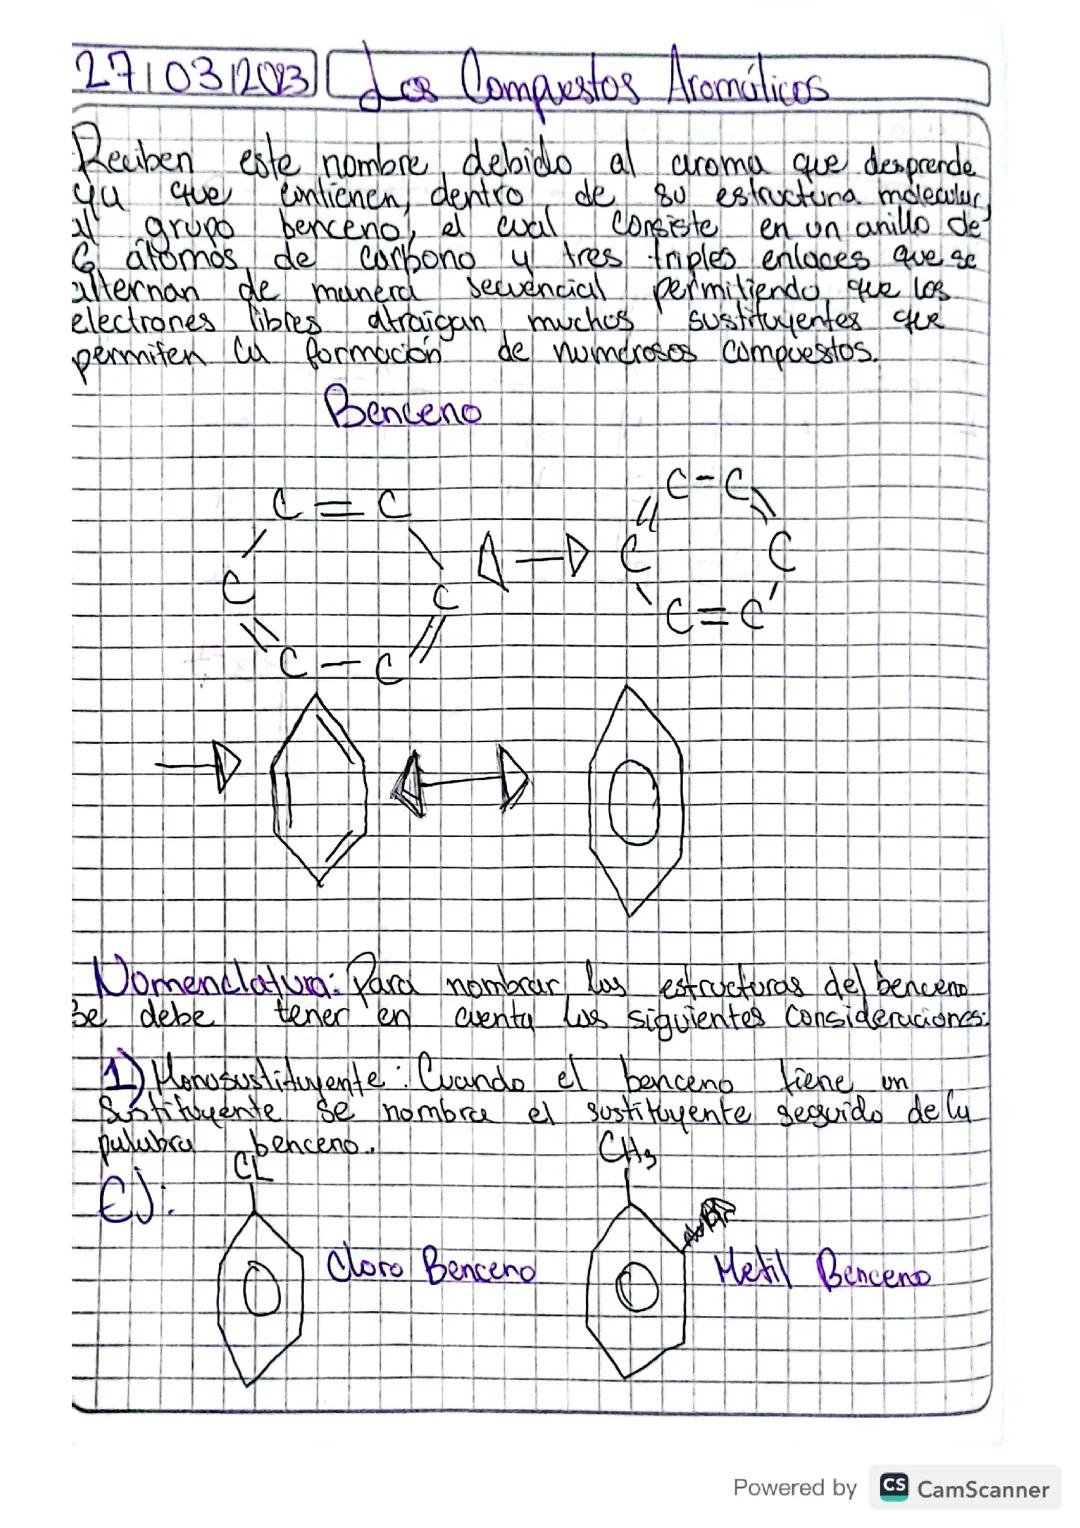 27/03/2023 Los Compuestos Aromáticos
Reciben este nombre debido al aroma que desprende
ya que contienen, dentro de su estructura molecular,
al grupo benceno, el cual consiste en un anillo de
6 átomos de carbono y tres triples enlaces que se
alternan de manera secuencial permitiendo que los
electrones libres atraigan muchos sustituyentes que
permiten la formación de numerosos compuestos.
Benceno
C = C
C - C
C
C
C
C
C - C
C = C
Nomenclatura: Para nombrar las estructuras del benceno
se debe tener en cuenta las siguientes consideraciones:
1) Monosustituyente: Cuando el benceno tiene un
sustituyente se nombra el sustituyente seguido de la
palabra benceno.
Ej:
CL
CH3
Cloro Benceno
Metil Benceno
Powered by CS CamScanner